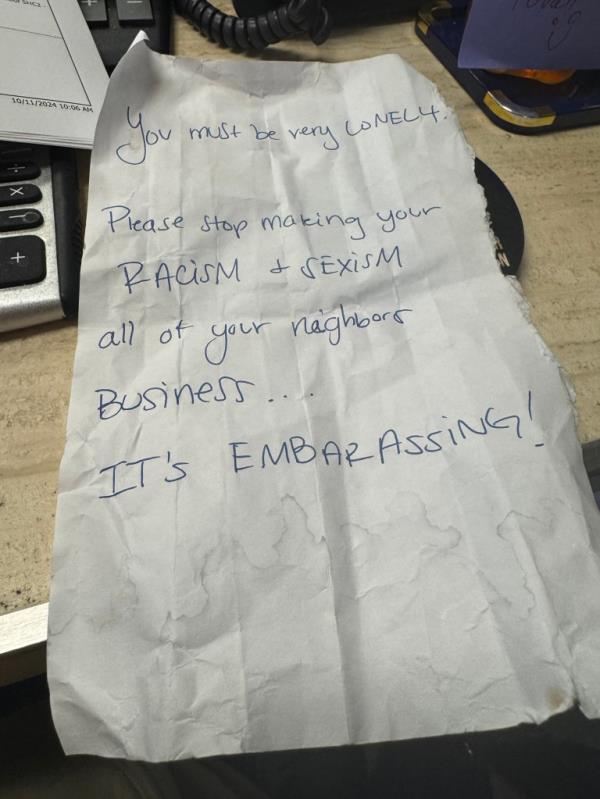 10/11/2024 10:06 AM
You must be very LONELY.
Please stop making your
RACISM + SEXISM
all of your neighbors
BUSINESS ....
IT'S EMBARASSING!